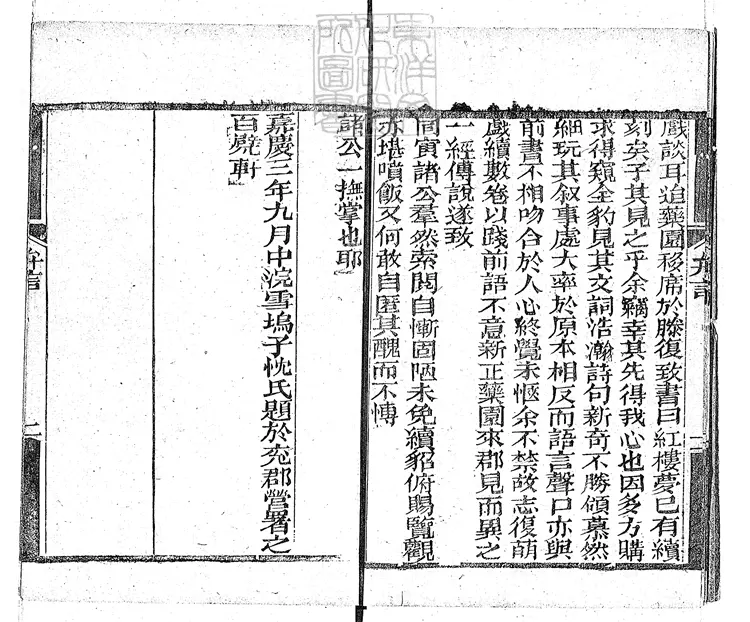 戲談耳迨藥園移席於滕復致書曰紅樓夢已有續
刻矣子其見之乎余竊幸其先得我心也因多方購
求得窺全豹見其文詞浩瀚詩句新奇不勝傾慕然
細玩其叙事處大率於原本相反而語言聲口亦與
前書不相吻合於人心終覺未愜余不禁故志復萌
戲續數卷以踐前語不意新正藥園來郡見而異之
一經傳說遂致
同寅諸公羣然索閱自慚固陋未免續貂俯賜覽觀
亦堪噴飯又何敢自匿其醜而不博
諸公一撫掌也耶
嘉慶三年九月中浣雪塢子忱氏題於兖郡營署之
百甓軒
弁言
二